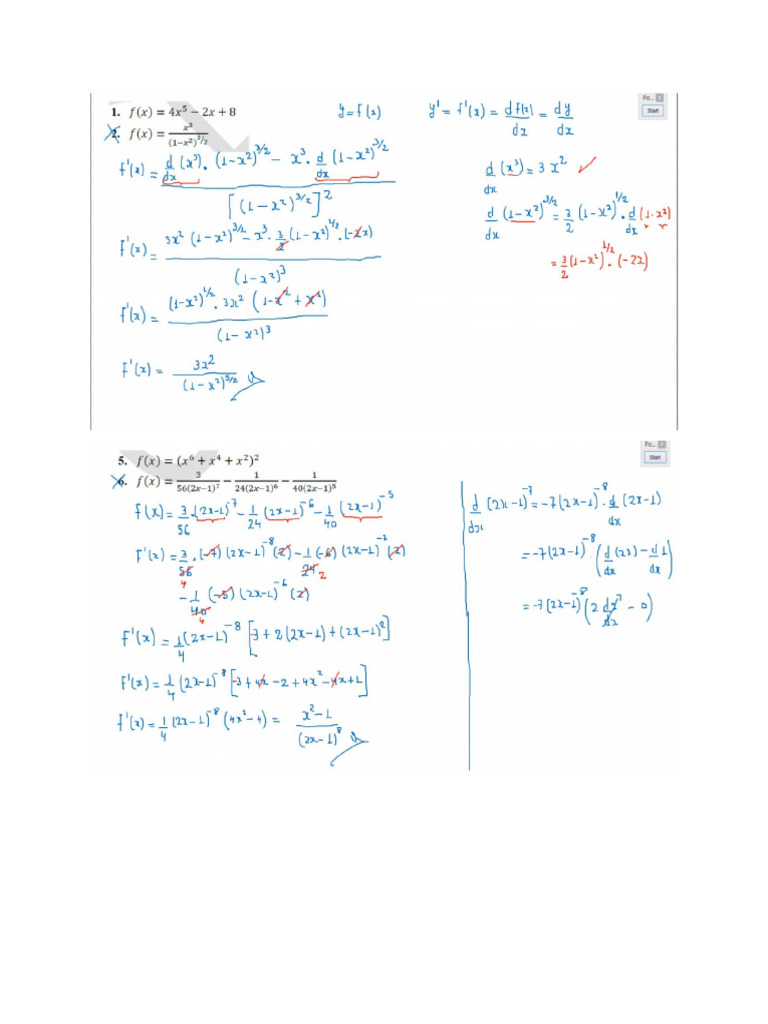 1. f(x) = 4x⁵ − 2x + 8
y = f(x)
y' = f'(x) = d f(x)/dx = dy/dx
Po...
Start
2. f(x) = x³/(1−x²)^(3/2)
f'(x) = [d/dx (x³) · (1−x²)^(3/2) − x³ · d/dx (1−x²)^(3/2)] / [(1−x²)^(3/2)]²
d/dx (x³) = 3x² ✓
d/dx (1−x²)^(3/2) = 3/2 (1−x²)^(1/2) · d/dx (1−x²)
= 3/2 (1−x²)^(1/2) · (−2x)
f'(x) = [3x² (1−x²)^(3/2) − x³ · 3/2 (1−x²)^(1/2) · (−2x)] / (1−x²)³
f'(x) = [(1−x²)^(1/2) · 3x² (1−x² + x²)] / (1−x²)³
f'(x) = 3x²/(1−x²)^(5/2)
5. f(x) = (x⁶ + x⁴ + x²)²
Po...
Start
6. f(x) = 3/(56(2x−1)⁷) − 1/(24(2x−1)⁶) − 1/(40(2x−1)⁵)
f(x) = 3/56 (2x−1)⁻⁷ − 1/24 (2x−1)⁻⁶ − 1/40 (2x−1)⁻⁵
f'(x) = 3/56 · (−7)(2x−1)⁻⁸ (2) − 1/24 (−6)(2x−1)⁻⁷ (2)
4 2
− 1/40 (−5)(2x−1)⁻⁶ (2)
4
f'(x) = 1/4 (2x−1)⁻⁸ [−3 + 2(2x−1) + (2x−1)²]
f'(x) = 1/4 (2x−1)⁻⁸ [−3 + 4x − 2 + 4x² − 4x + 1]
f'(x) = 1/4 (2x−1)⁻⁸ (4x² − 4) = (x²−1)/(2x−1)⁸
d/dx (2x−1)⁻⁷ = −7(2x−1)⁻⁸ · d/dx (2x−1)
= −7(2x−1)⁻⁸ · (d/dx (2x) − d/dx 1)
= −7(2x−1)⁻⁸ (2 dx/dx − 0)